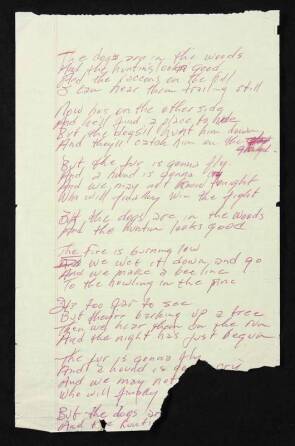 The dogs are in the woods
And the huntins lookin good
And the raccoons on the hill
I can hear them trailing still
Now hes on the other side
And he'll find a place to hide
But the dogs'll hunt him down
And they'll catch him on the ground.
But the fur is gonna fly
And a hound is gonna
And we may not know tonight
Who will finally win the fight
But the dogs are in the woods
And the huntin looks good
The fire is burning low
we wet it down and go
And we make a bee line
To the howling in the pine
Its too far to see
But they're barking up a tree
Then we hear them on the run
And the night has just begun
The fur is gonna fly
And a hound is gonna cry
And we may not
Who will finally
But the dogs are
And the hunti